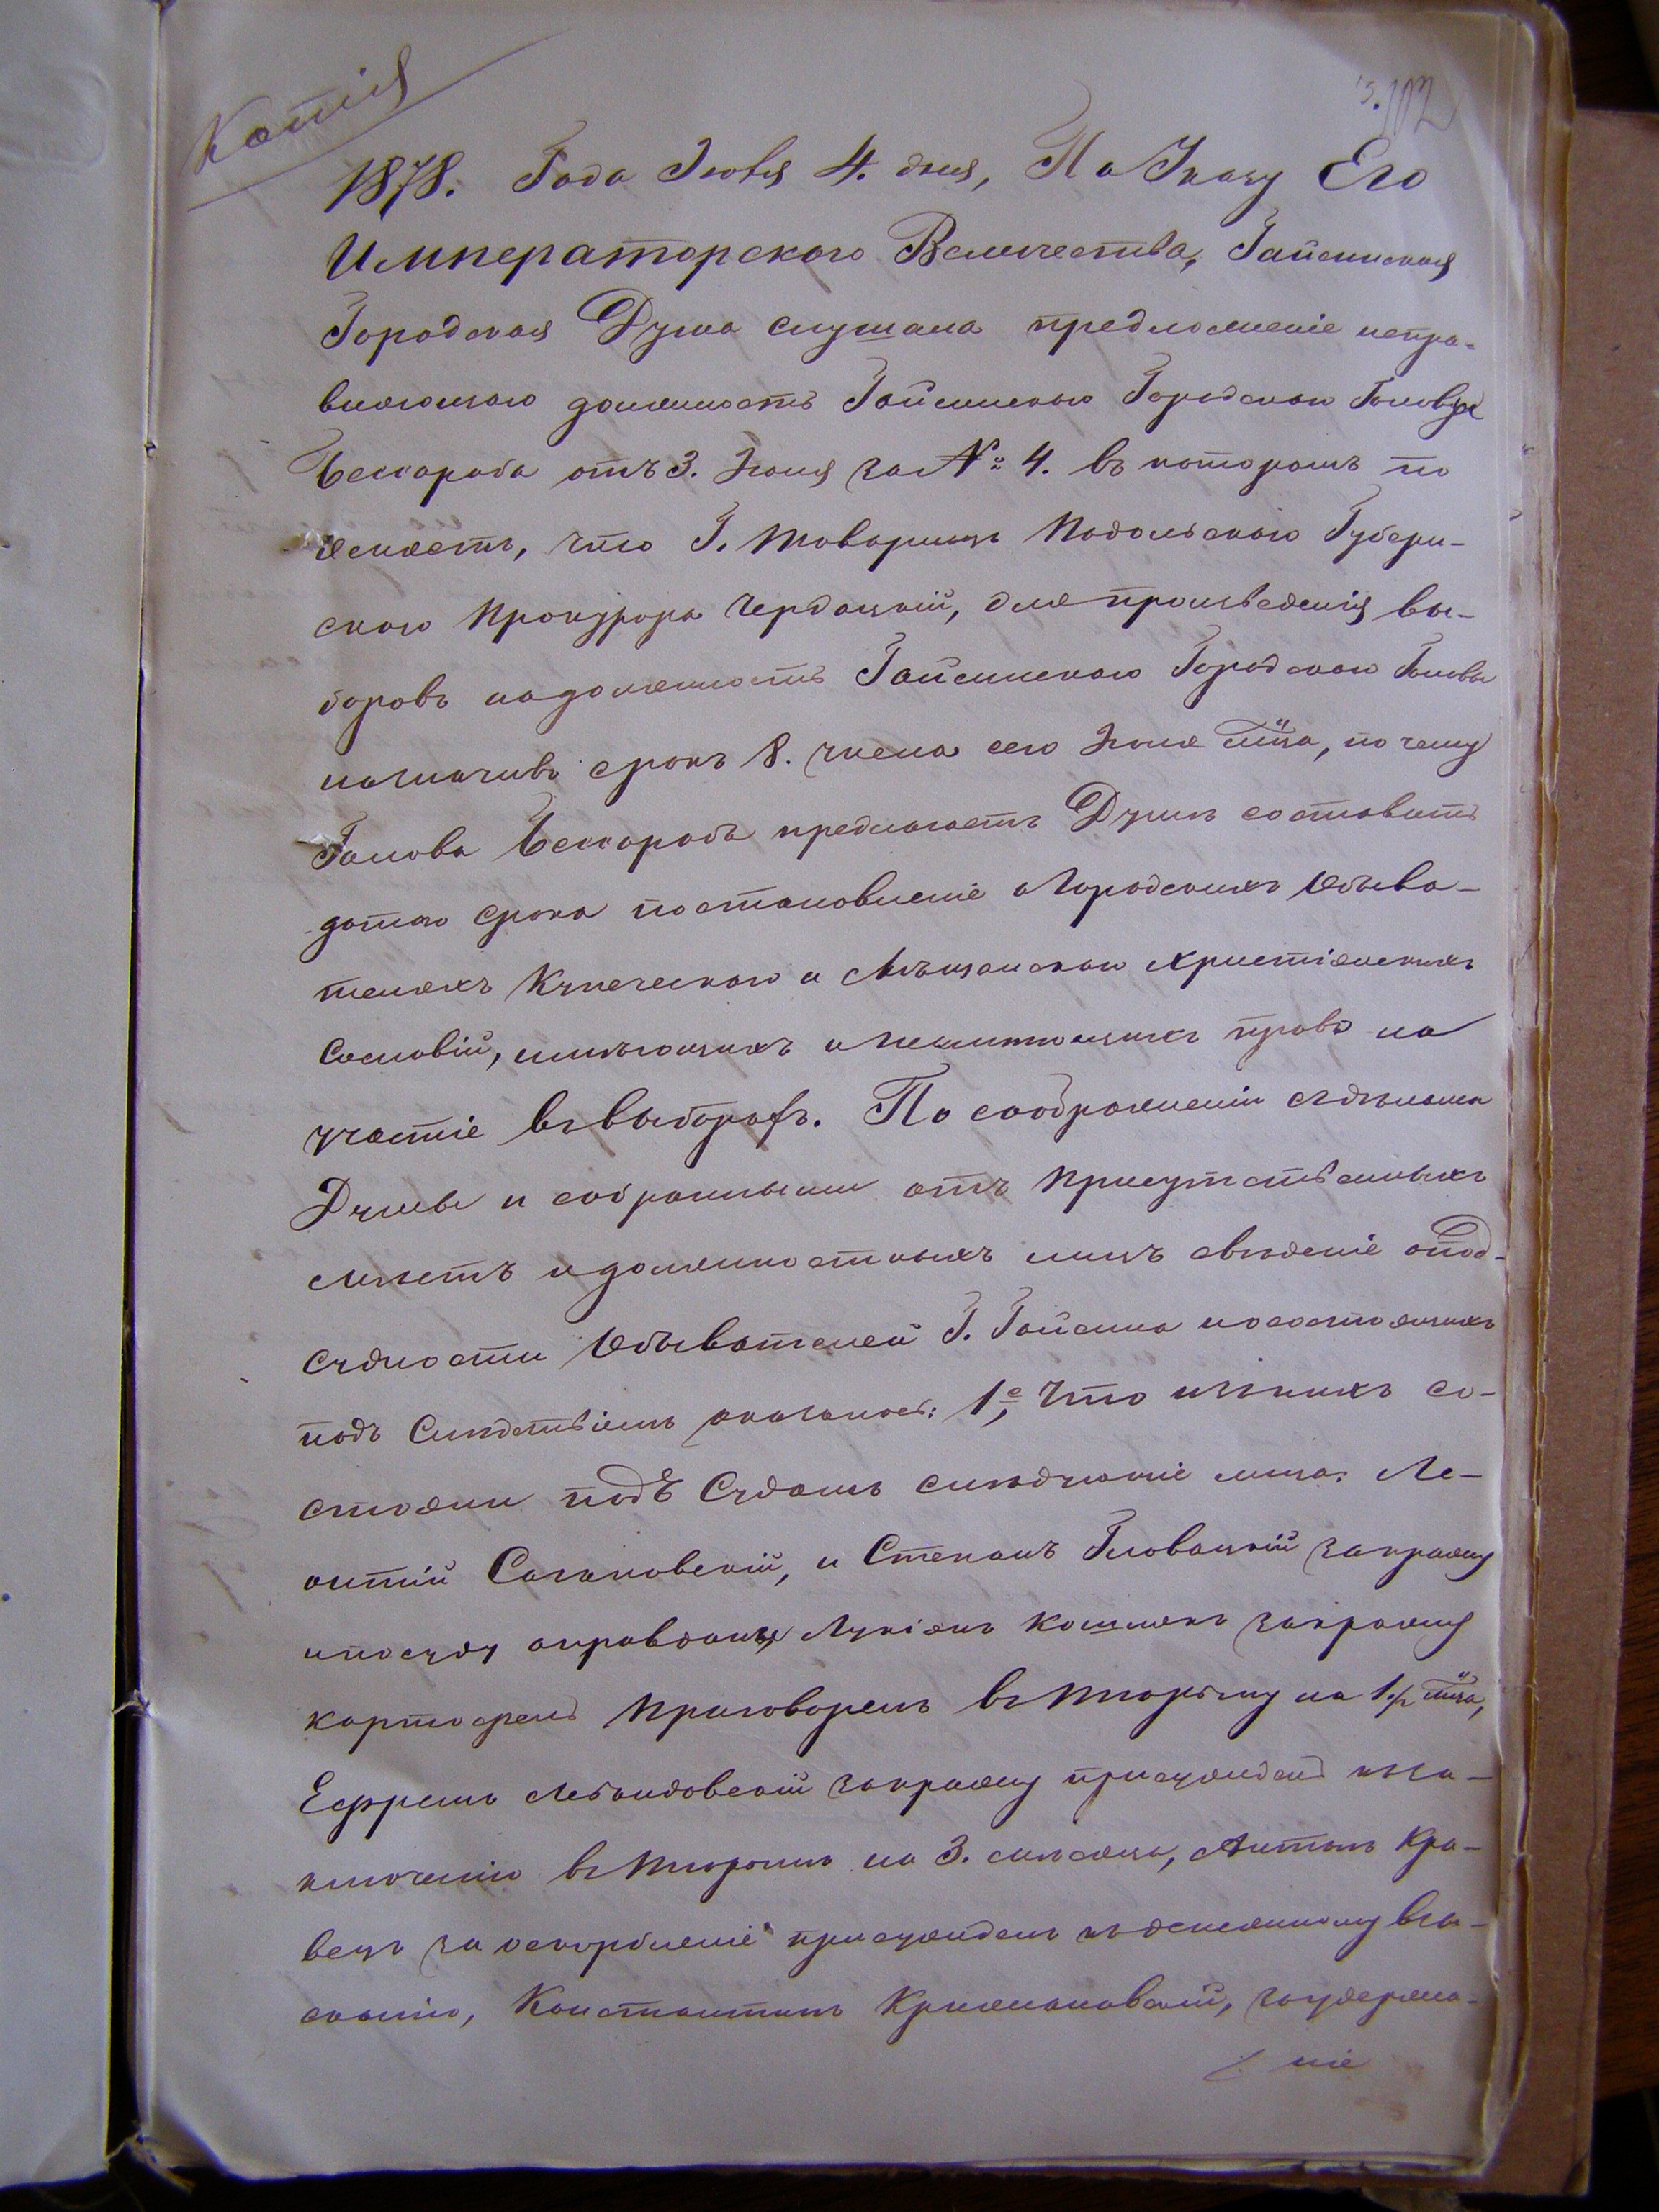 Копія
102
1878. Года Іюня 4. дня, По Указу Его
Императорского Величества, Гайсинская
Городская Дума слушала предложеніе испра-
вляющаго должность Гайсинского Городскаго Головы
Бессараба отъ 3. Іюня за № 4. въ которомъ по
ясняетъ, что Г. Товарищъ Подольскаго Губерн-
скаго Прокурора Чердацкій, для произведенія вы-
боровъ на должность Гайсинскаго Городскаго Головы
назначивъ срокъ 8. числа сего Іюня м̃ца, почему
Голова Бессарабъ предлагаетъ Думѣ составить
дотого срока постановленіе о Городскихъ Обыва-
теляхъ Купеческаго и Мѣщанскаго Христіянскихъ
Сословій, имѣющихъ и неимѣющихъ право на
участіе въ выборахъ. По соображеніи съ дѣлами
Думы и собранными отъ Присутственныхъ
мѣстъ и должностныхъ лицъ свѣденіе о под-
судности Обывателей Г. Гайсина и о состоящихъ
подъ Слѣдствіемъ оказалось: 1е, Что изъ нихъ со-
стояли подъ Судомъ слѣдующіе лица: Ле-
онтій Сагановскій, и Степанъ Гловацкій за кражу
и по суду оправданы, Лукіянъ Кошмякъ за кражу
картофель приговоренъ въ тюрьму на 1½ м̃ца,
Ефремъ Лебандовскій за кражу присужденъ къ за-
ключенію въ тюрьмѣ на 3. мѣсяца, Антонъ Кра-
вецъ за оскорбленіе присужденъ къ денежному взы-
сканію, Константинъ Крижановскій, за удержа-
ніе